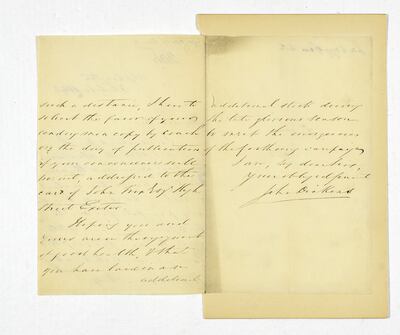 such a distance, I have to
select the favor of your
sending me a copy by Coach
on the day of publication
if your convenience will
permit, addressed to the
care of John Esqr High
Street Exeter.
Hoping you and
yours are in the enjoyment
of good health, & that
you have laid in a
additional
additional stock during
the late glorious season
to meet the emergencies
of the forthcoming campaign
I am, My dear Sir,
Your obliged friend
John Dickens